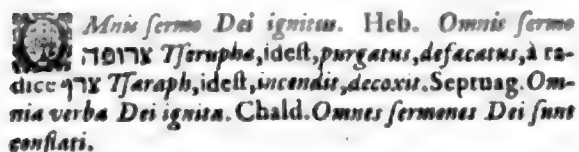 OMnis sermo Dei ignitus. Heb. Omnis sermo
צרופה Tserupha, idest, purgatus, defæcatus, à ra-
dice צרף Tsaraph, idest, incendit, decoxit. Septuag. Om-
nia verba Dei ignita. Chald. Omnes sermones Dei sunt
conflati.